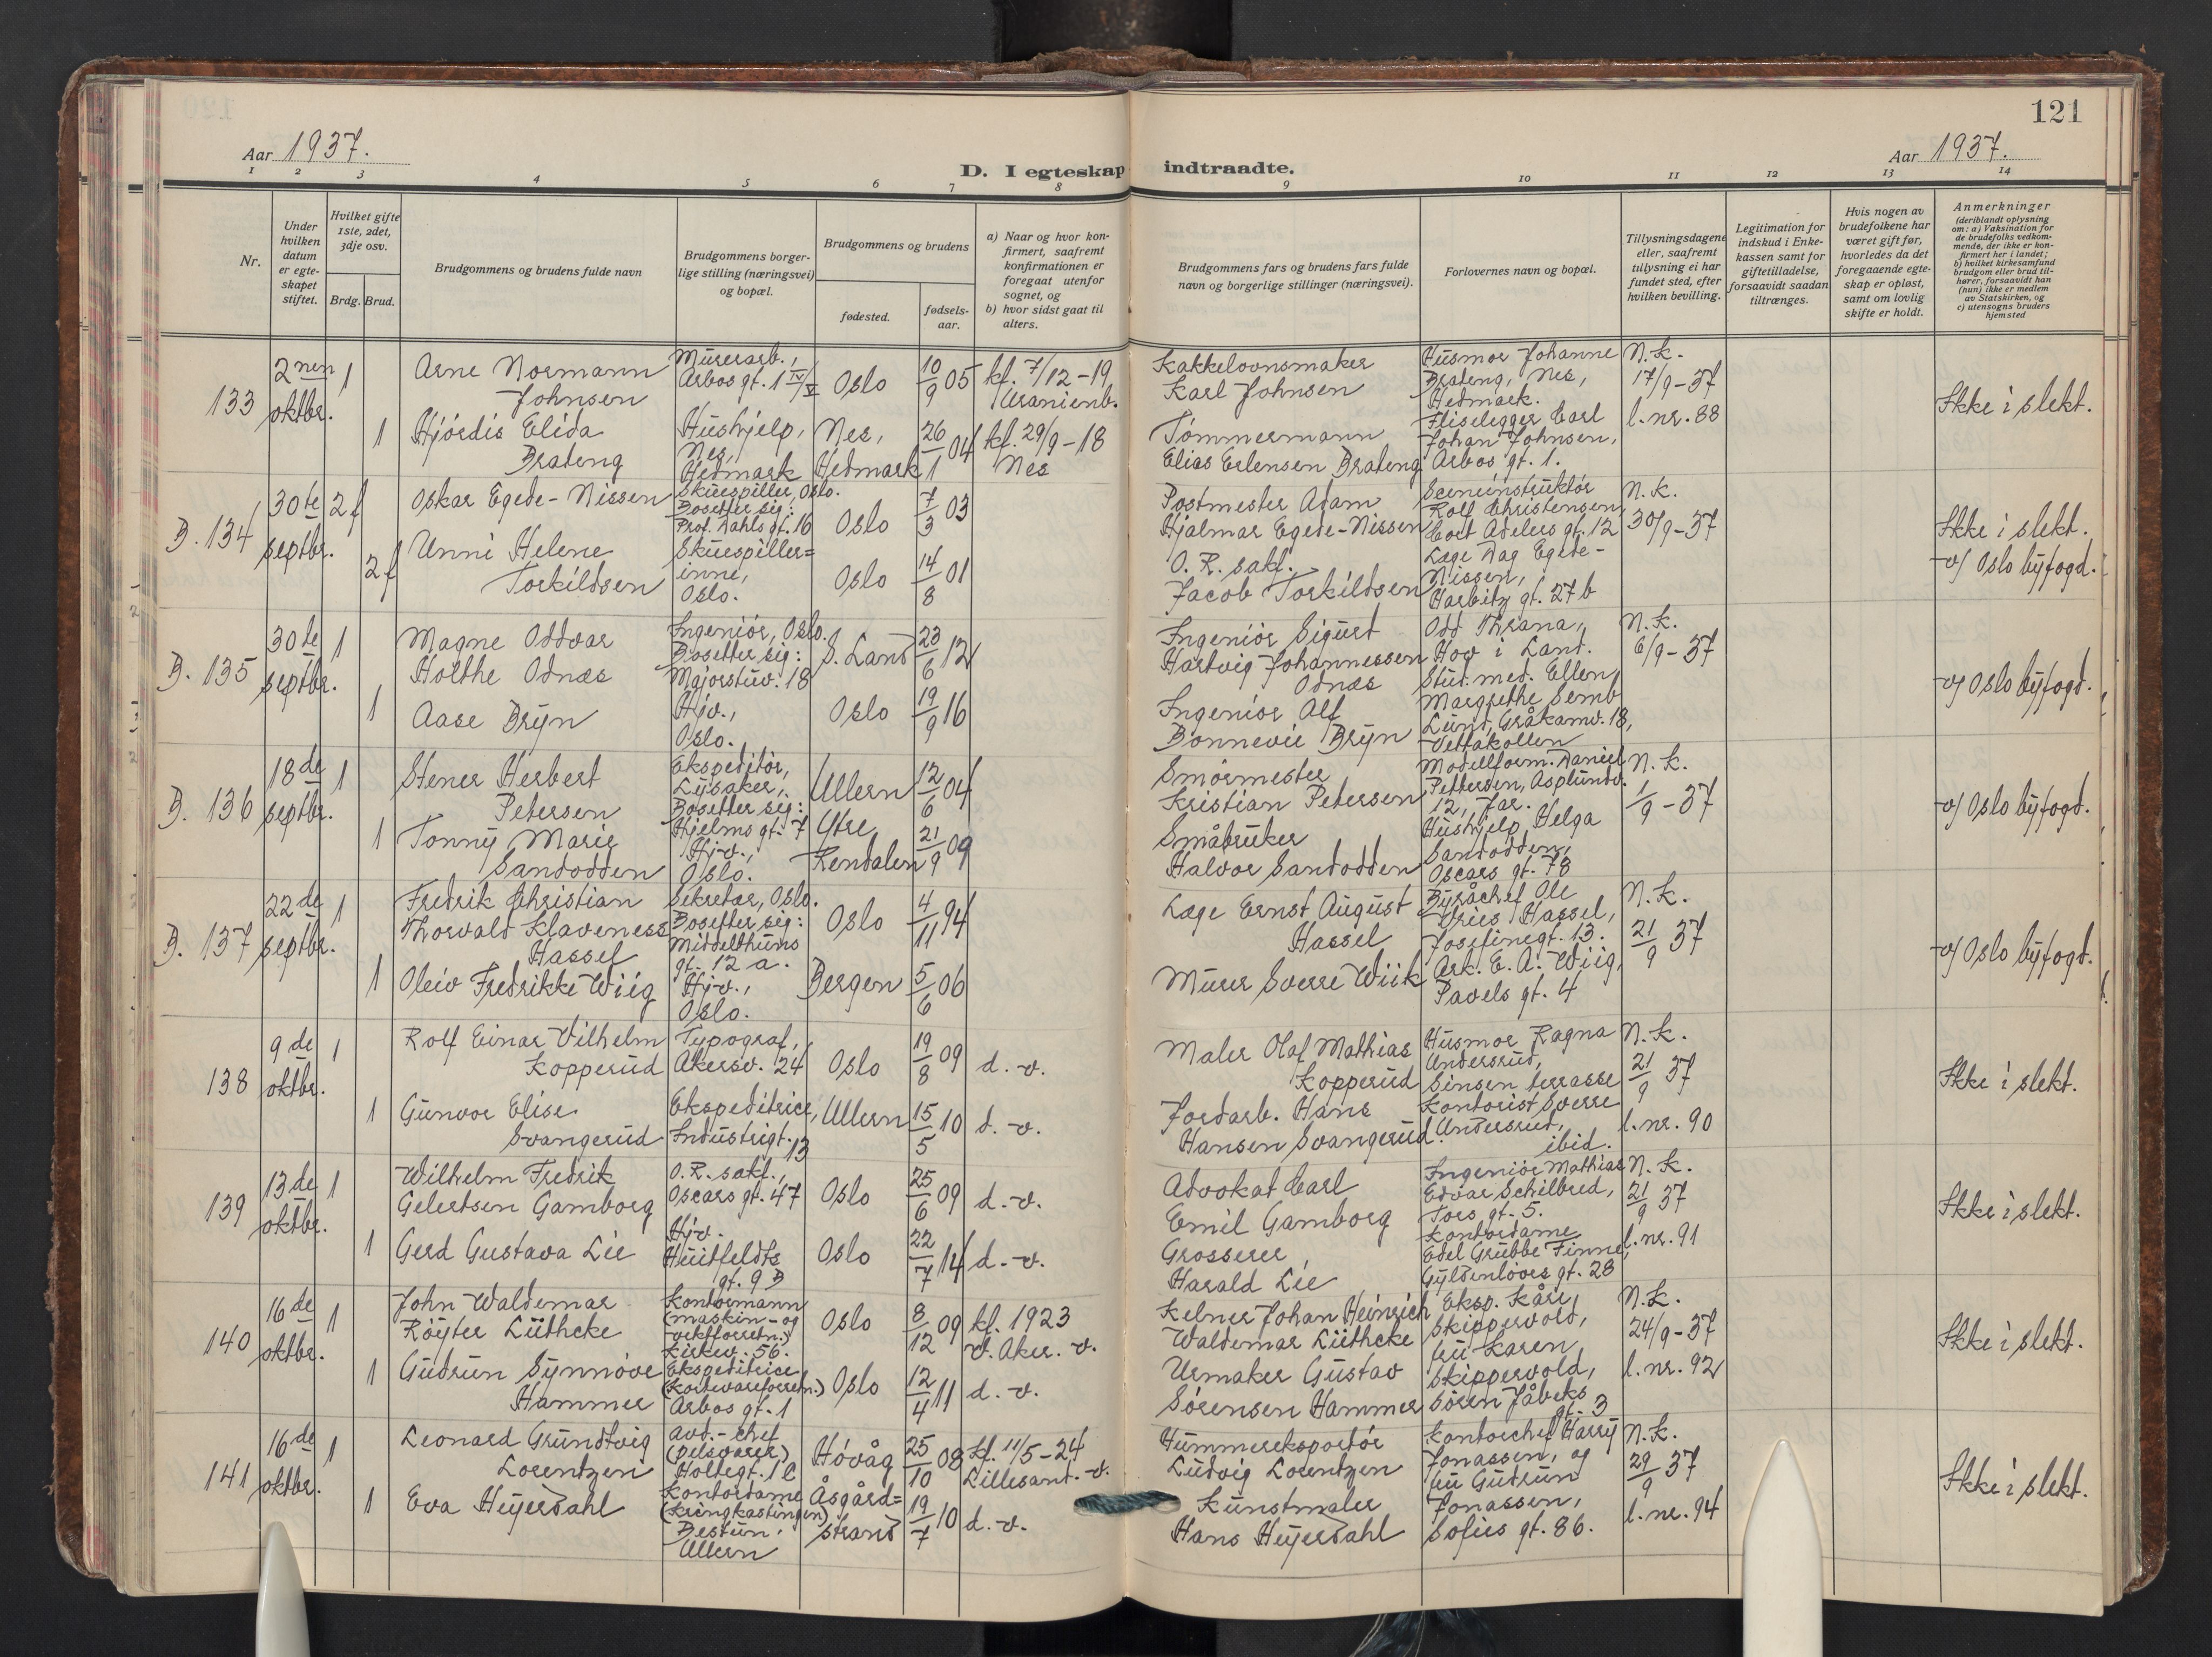 121
Aar 1937.
Aar 1937.
D. I egteskap indtraadte.
1 2 3 4 5 6 7 8 9 10 11 12 13 14
Nr.
Under hvilken datum er egteskapet stiftet.
Hvilket gifte 1ste, 2det, 3dje osv.
Brdg. Brud.
Brudgommens og brudens fulde navn
Brudgommens borgerlige stilling (næringsvei) og bopæl.
Brudgommens og brudens
fødested.
fødselsaar.
a) Naar og hvor konfirmert, saafremt konfirmationen er foregaat utenfor sognet, og
b) hvor sidst gaat til alters.
Brudgommens fars og brudens fars fulde navn og borgerlige stillinger (næringsvei).
Forlovernes navn og bopæl.
Tillysningsdagene eller, saafremt tillysning ei har fundet sted, efter hvilken bevilling.
Legitimation for indskud i Enkekassen samt for giftetilladelse, forsaavidt saadan tiltrænges.
Hvis nogen av brudefolkene har været gift før, hvorledes da det foregaaende egteskap er opløst, samt om lovlig skifte er holdt.
Anmerkninger
(deriblandt oplysning om: a) Vaksination for de brudefolks vedkommende, der ikke er konfirmert her i landet; b) hvilket kirkesamfund brudgom eller brud tilhører, forsaavidt han (hun) ikke er medlem av Statskirken, og c) utensogns bruders hjemsted
133
2nen oktbr.
1
Arne Normann Johnsen
Murerarb., Arbos gt. 1 IV/V
Oslo
10/9 05
kf. 7/12-19 Uranienb.
Kakkelovnsmaker Karl Johnsen
Husmor Johanne Brateng, Nes, Hedmark.
N.k. 17/9-37
Ikke i slekt.
1
Hjördis Elida Brateng
Hushjelp, Nes, Hedmark
Nes, Hedmark
26/1 04
kf. 29/9-18 Nes
Tömmermann Elias Erlensen Brateng
Fliselegger Carl Johan Johnsen, Arbos gt. 1.
l.nr. 88
B. 134
30te septbr.
2 f
Oskar Egede-Nissen
Skuespiller, Oslo. Bosetter sig: Prof. Dahls gt. 16
Oslo
7/3 03
Postmester Adam Hjalmar Egede-Nissen
Sceneinstruktör Rolf Christensen, Cort Adelers gt. 12
N.k. 30/9-37
Ikke i slekt.
2 f
Unni Helene Torkildsen
Skuespillerinne, Oslo.
Oslo
14/8 01
O.R. sakf. Jacob Torkildsen
Læge Dag Egede-Nissen, Harbitz gt. 27 b
v/ Oslo byfogd.
B. 135
30te septbr.
1
Magne Oddvar Holthe Odnæs
Ingeniör, Oslo. Bosetter sig: Majorstuv. 18
S. Land
23/6 12
Ingeniör Sigurt Hartvig Johannessen Odnæs
Odd Thrana, Hov i Land.
N.k. 6/9-37
v/ Oslo byfogd.
1
Aase Bryn
Hjv., Oslo.
Oslo
19/9 16
Ingeniör Alf Bonnevie Bryn
Stud. med. Ellen Margrethe Semb Lund, Gråkamv. 18, Vettakollen
B. 136
18de septbr.
1
Stener Herbert Petersen
Ekspeditör, Lysaker, Bosetter sig: Hjelms gt. 7
Ullern
12/6 04
Smörmester Kristian Petersen
Modellform. Daniel Pettersen, Asplundv. 12, Jar.
N.k. 1/9-37
v/ Oslo byfogd.
1
Tonny Marie Sandodden
Hjv., Oslo.
Ytre Rendalen
21/9 09
Småbruker Halvor Sandodden
Hushjelp Helga Sandodden, Oscars gt. 78
B. 137
22de septbr.
1
Fredrik Christian Thorvald Klaveness Hassel
Sekretær, Oslo. Bosetter sig: Middelthuns gt. 12 a.
Oslo
4/11 94
Læge Ernst August Hassel
Byråchef Ole Vries Hassel, Josefinegt. 13.
N.k. 21/9 37
v/ Oslo byfogd.
1
Oleiv Fredrikke Wiig
Hjv., Oslo.
Bergen
5/6 06
Murer Sverre Wiik
Ark. E. A. Wiig, Pavels gt. 4
138
9de oktbr.
1
Rolf Einar Vilhelm Kopperud
Typograf, Akersv. 24
Oslo
19/8 09
d. v.
Maler Olaf Mathias Kopperud
Husmor Ragna Andersrud, Sinsen terrasse
N.k. 21/9 37
Ikke i slekt.
1
Gunvor Elise Svangerud
Ekspeditrice, Industrigt. 13
Ullern
15/5 10
d. v.
Jordarb. Hans Hansen Svangerud.
Kontorist Sverre Andersrud, ibid.
l.nr. 90
139
13de oktbr.
1
Wilhelm Fredrik Gelertsen Gamborg
O.R. sakf., Oscars gt. 47
Oslo
25/6 09
d. v.
Advokat Carl Emil Gamborg
Ingeniör Mathias Edvar Schilbred, Tors gt. 5.
N.k. 21/9 37
Ikke i slekt.
1
Gerd Gustava Lie
Hjv. Huitfeldts gt. 9 B
Oslo
22/7 14
d. v.
Grosserer Harald Lie
Kontordame Edel Grubbe Finne, Gyldenlöves gt. 28
l.nr. 91
140
16de oktbr.
1
John Waldemar Röyter Lüthcke
Kontormann (maskin- og vektforretn.) Kirkev. 56.
Oslo
8/12 09
kf. 1923 V. Aker. v.
Kelner Johan Heinrich Waldemar Lüthcke
Eksp. Kåre Skippervold,
N.k. 24/9-37
Ikke i slekt.
1
Gudrun Synnöve Hammer
Ekspeditrice (Kortevareforretn.) Arbos gt. 1
Oslo
12/4 11
d. v.
Urmaker Gustav Sörensen Hammer
fru Karen Skippervold, Sören Jåbeks gt. 3
l.nr. 92
141
16de oktbr.
1
Leonard Grundtvig Lorentzen
Avd.-chef (pelsvarer) Holtegt. 1 c
Hövåg
25/10 08
kf. 11/5-24 Lillesand. v.
Hummereksportör Ludvig Lorentzen
Kontorchef Harry Jonassen, og
N.k. 29/9 37
Ikke i slekt.
1
Eva Heyerdahl
Kontordame (kringkastingen) Bestun, Ullern
Åsgårdstrand
19/7 10
d. v.
Kunstmaler Hans Heyerdahl
fru Gudrun Jonassen, Sofies gt. 86.
l.nr. 94